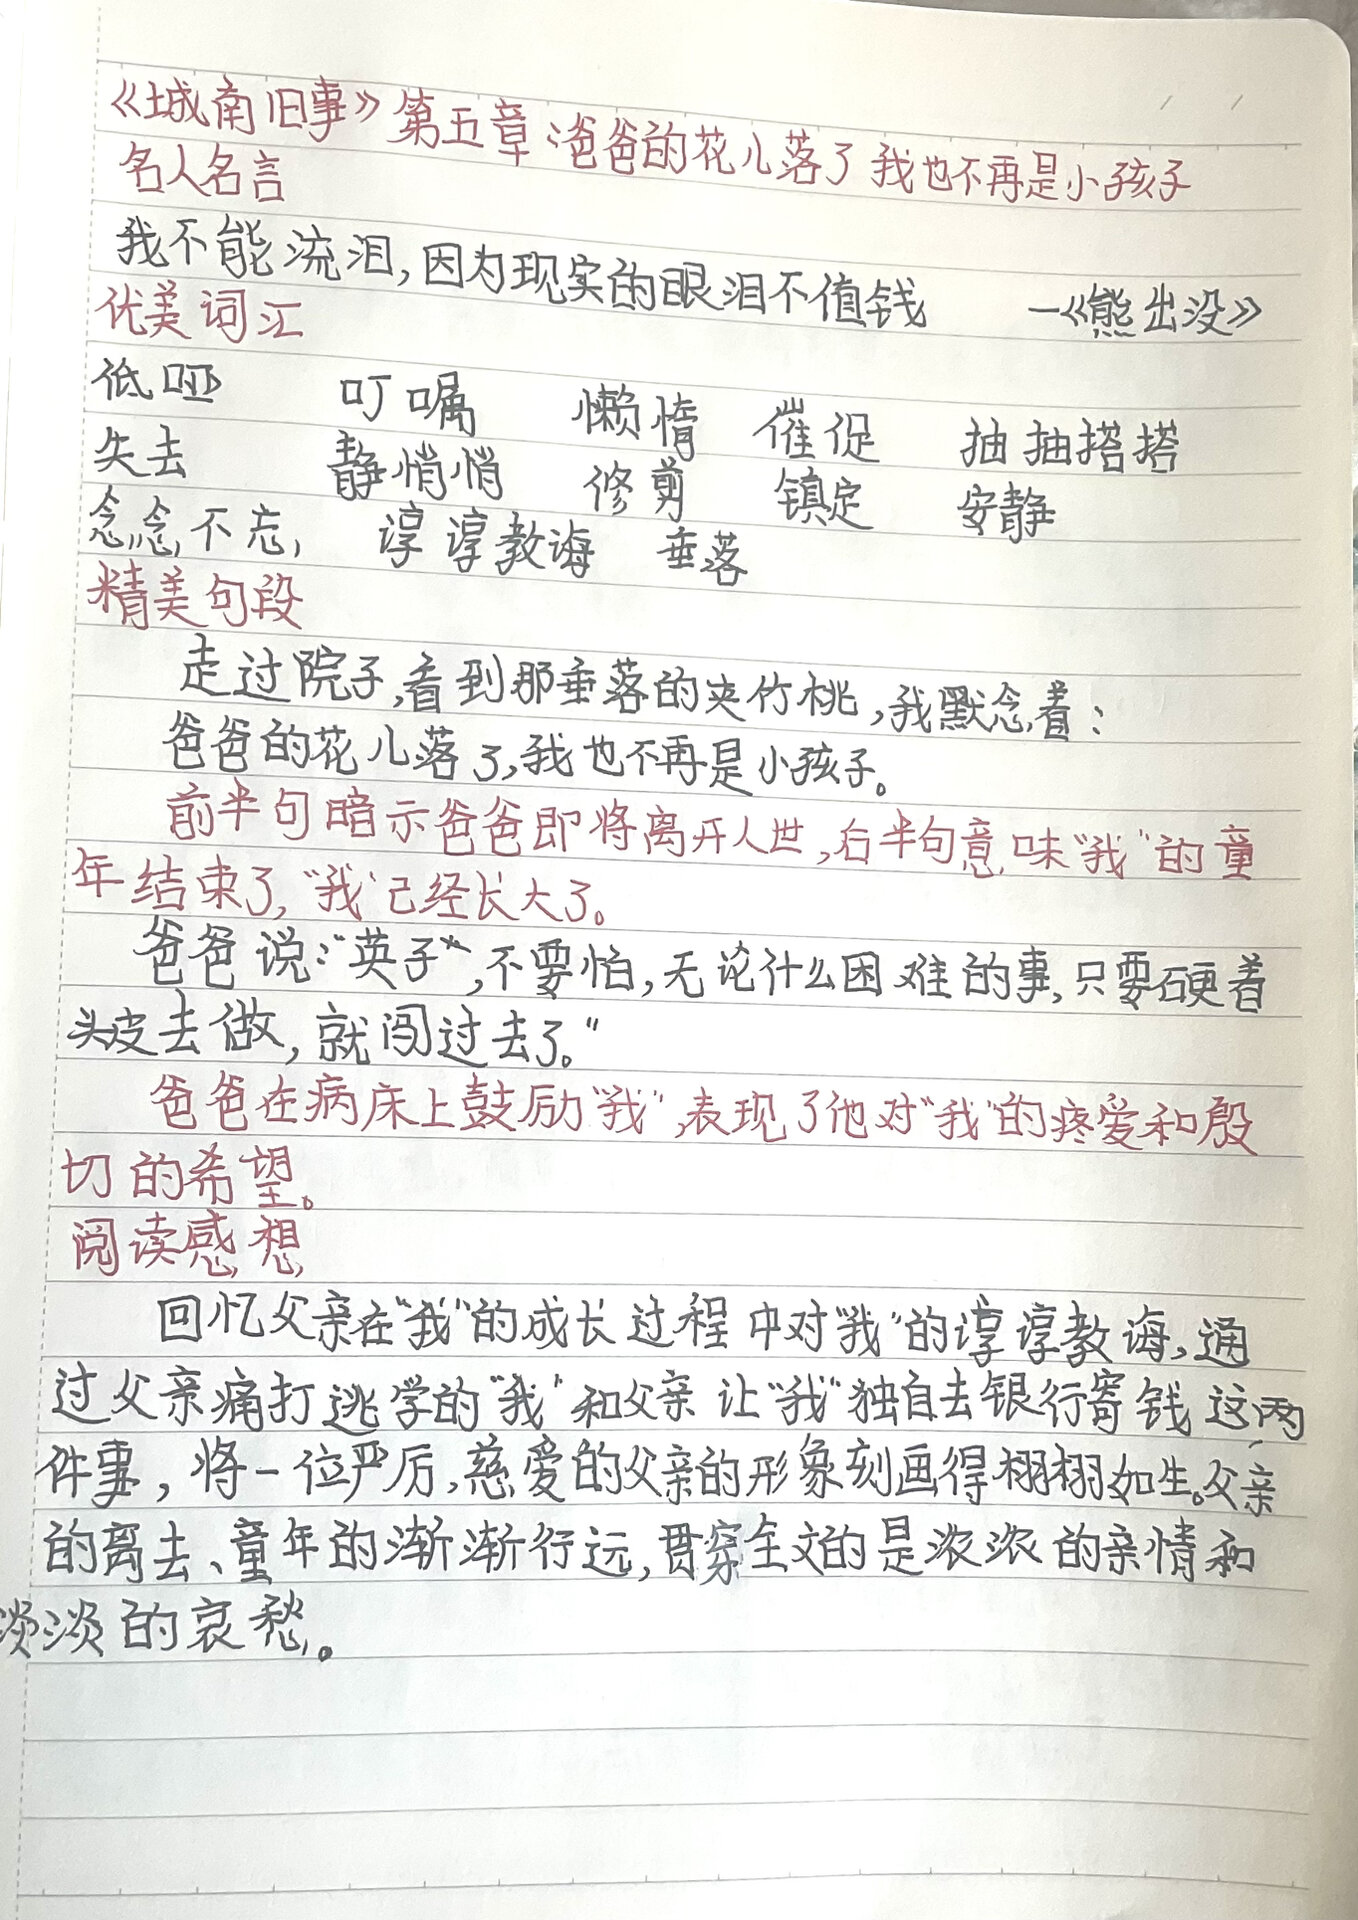 《城南旧事》第五章:爸爸的花儿落了 我也不再是小孩子
名人名言
我不能流泪,因为现实的眼泪不值钱 —《熊出没》
优美词汇
低哑 叮嘱 懒惰 催促 抽抽搭搭
失去 静悄悄 修剪 镇定 安静
念念不忘, 谆谆教诲 垂落
精美句段
走过院子,看到那垂落的夹竹桃,我默念着:
爸爸的花儿落了,我也不再是小孩子。
前半句暗示爸爸即将离开人世,后半句意味“我”的童
年结束了,“我”已经长大了。
爸爸说:“英子”,不要怕,无论什么困难的事,只要硬着
头皮去做,就闯过去了。”
爸爸在病床上鼓励“我”,表现了他对“我”的疼爱和殷
切的希望。
阅读感想
回忆父亲在“我”的成长过程中对“我”的谆谆教诲,通
过父亲痛打逃学的“我”和父亲让“我”独自去银行寄钱这两
件事,将一位严厉,慈爱的父亲的形象刻画得栩栩如生。父亲
的离去、童年的渐渐行远,贯穿全文的是浓浓的亲情和
淡淡的哀愁。